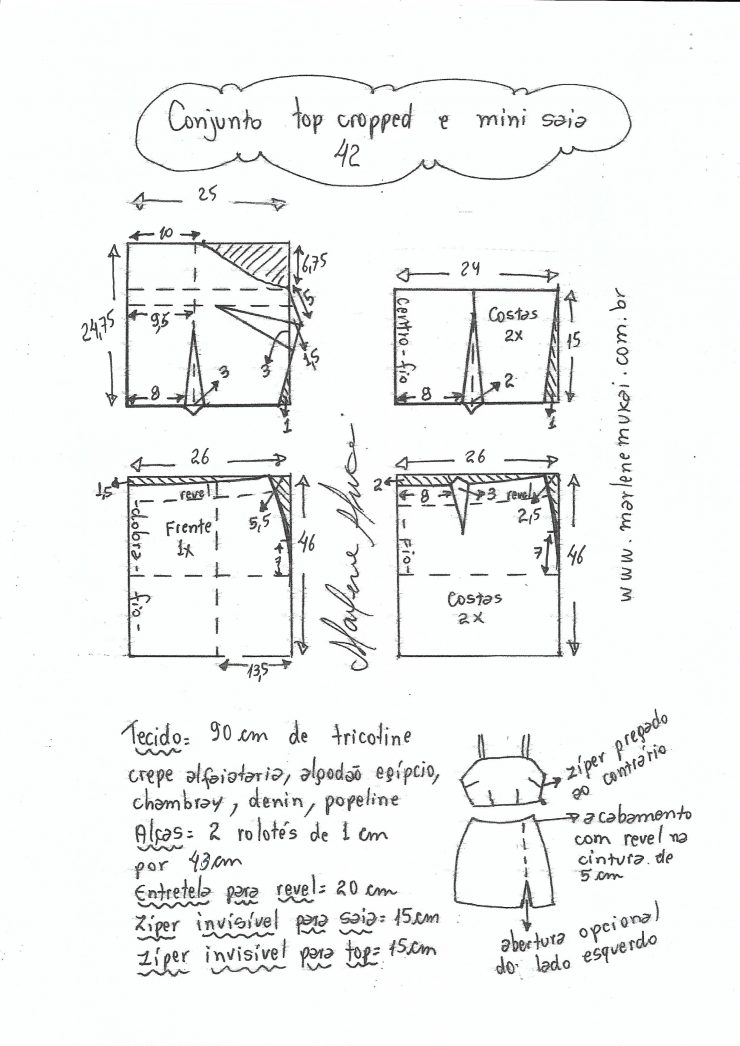 Conjunto top cropped e mini saia
42
25
10
6,75
5
24,75
9,5
1,5
3
3
8
1
24
centro-fio
Costas
2x
15
8
2
1
26
1,5
revel
Frente
1x
5,5
46
7
-dobra-
fio-
13,5
26
2
8
3
revel
2,5
-fio-
7
46
Costas
2x
www.marlenemukai.com.br
Marlene Mukai
Tecido= 90 cm de tricoline
crepe alfaiataria, algodão egípcio,
chambray, denin, popeline
Alças= 2 rolotés de 1 cm
por 43cm
Entretela para revel= 20 cm
Zíper invisível para saia= 15cm
zíper invisível para top= 15cm
zíper pregado
ao contrário
acabamento
com revel na
cintura de
5 cm
abertura opcional
do lado esquerdo